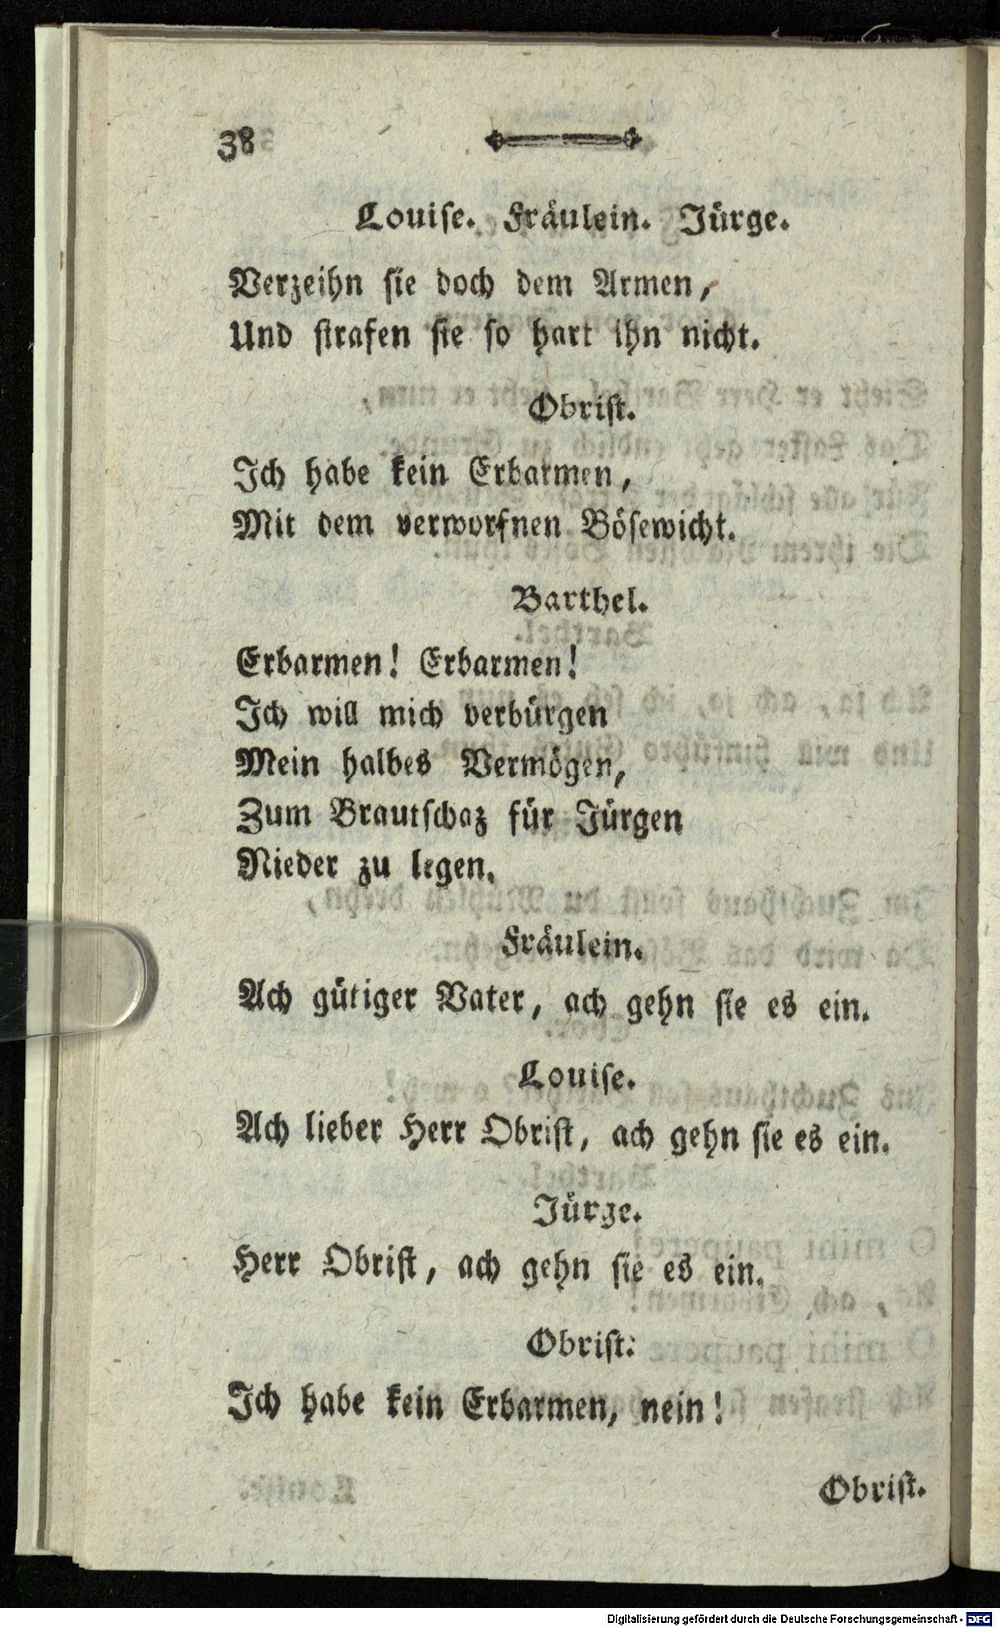 38
Louise. Fräulein. Jürge.
Verzeihn sie doch dem Armen,
Und strafen sie so hart ihn nicht.
Obrist.
Ich habe kein Erbarmen,
Mit dem verworfnen Bösewicht.
Barthel.
Erbarmen! Erbarmen!
Ich will mich verbürgen
Mein halbes Vermögen,
Zum Brautschaz für Jürgen
Nieder zu legen.
Fräulein.
Ach gütiger Vater, ach gehn sie es ein.
Louise.
Ach lieber Herr Obrist, ach gehn sie es ein.
Jürge.
Herr Obrist, ach gehn sie es ein.
Obrist.
Ich habe kein Erbarmen, nein!
Obrist.
Digitalisierung gefördert durch die Deutsche Forschungsgemeinschaft - DFG